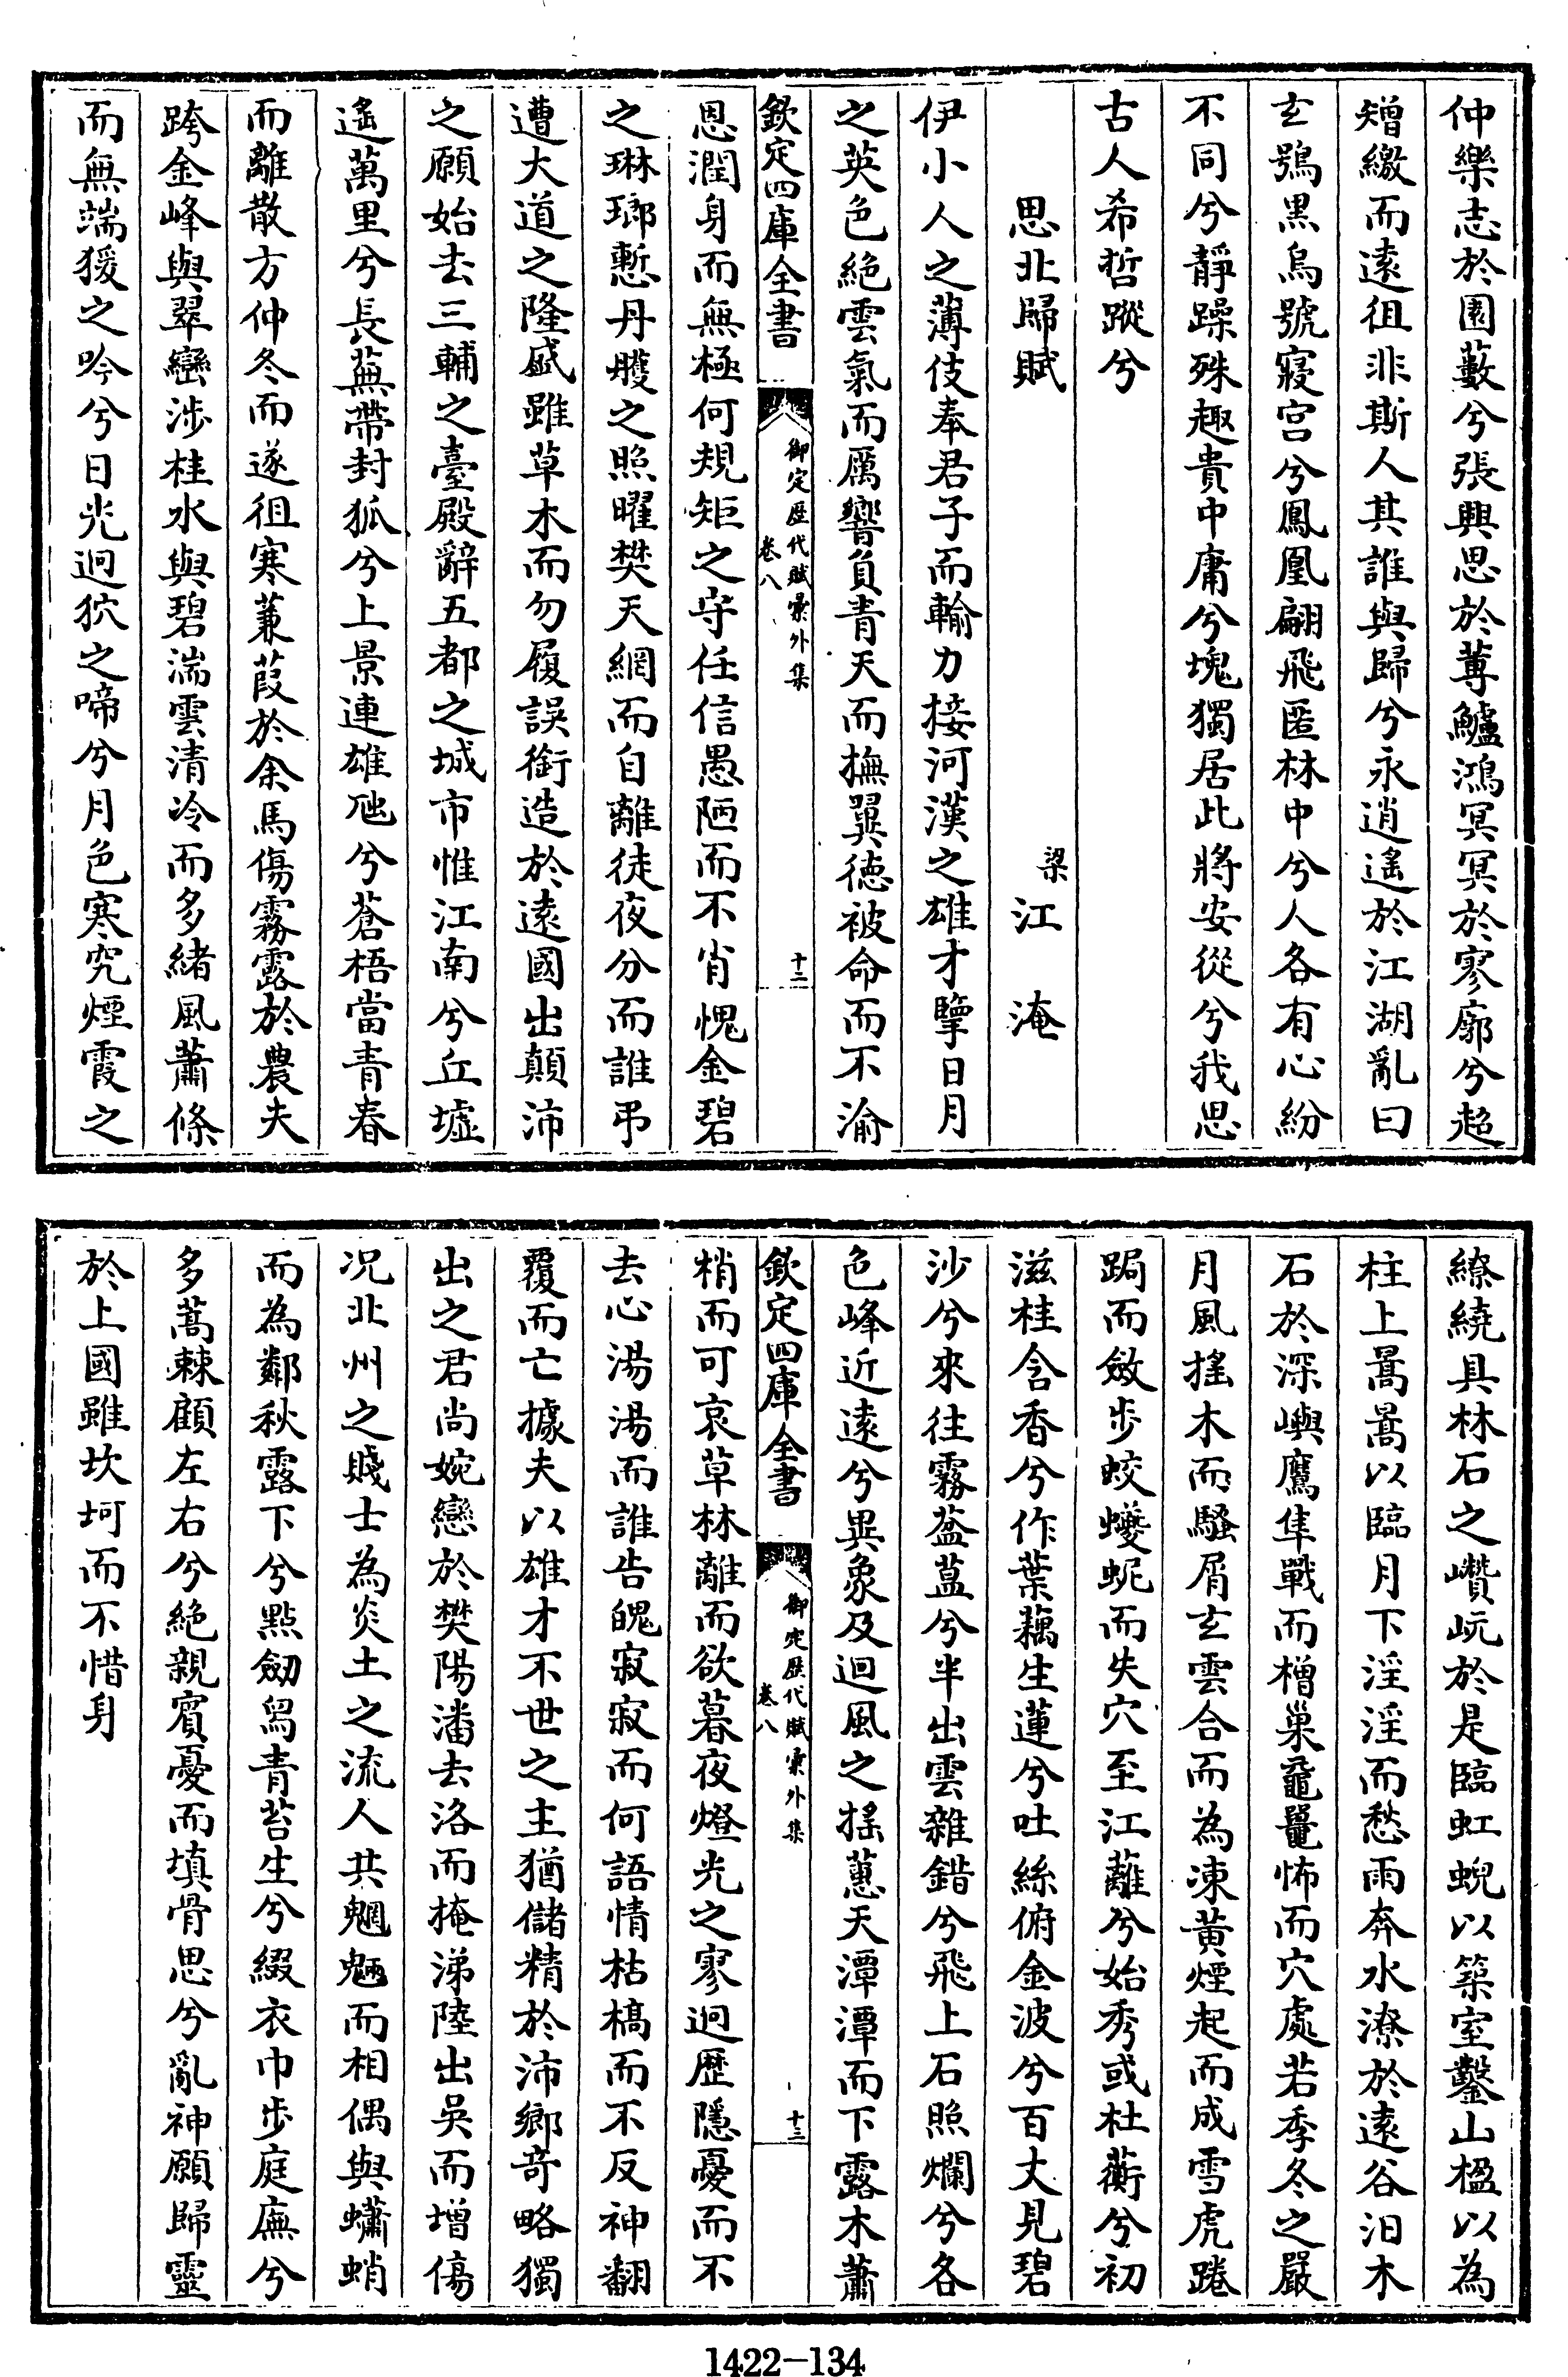 仲樂志於園藪兮張興思於蓴鱸鴻冥冥於寥廓兮超
矰繳而遠徂非斯人其誰與歸兮永逍遙於江湖亂曰
玄鴞黑烏號寢宫兮鳳凰翩飛匿林中兮人各有心紛
不同兮靜躁殊趣貴中庸兮塊獨居此將安從兮我思
古人希哲蹤兮
思北歸賦
梁江淹
伊小人之薄伎奉君子而輸力接河漢之雄才擥日月
之英色絕雲氣而厲響負青天而撫翼德被命而不渝
欽定四庫全書
御定歷代賦彙外集
卷八
十二
恩潤身而無極何規矩之守任信愚陋而不肖愧金碧
之琳瑯慙丹雘之照曜樊天網而自離徒夜分而誰弔
遭大道之隆盛雖草木而勿履誤銜造於遠國出顛沛
之願始去三輔之臺殿辭五都之城市惟江南兮丘墟
遙萬里兮長蕪帶封狐兮上景連雄虺兮蒼梧當青春
而離散方仲冬而遂徂寒蒹葭於余馬傷霧露於農夫
跨金峰與翠巒涉桂水與碧湍雲清冷而多緒風蕭條
而無端猨之吟兮日光迥狖之啼兮月色寒究煙霞之
繚繞具林石之巑岏於是臨虹蜺以築室鑿山楹以為
柱上暠暠以臨月下淫淫而愁雨奔水潦於遠谷汨木
石於深嶼鷹隼戰而橧巢黿鼉怖而穴處若季冬之嚴
月風搖木而騷屑玄雲合而為凍黃煙起而成雪虎踡
跼而斂步蛟蠼蚭而失穴至江蘺兮始秀或杜蘅兮初
滋桂含香兮作葉藕生蓮兮吐絲俯金波兮百丈見碧
沙兮來往霧菴䓿兮半出雲雜錯兮飛上石照爛兮各
色峰近遠兮異象及迴風之搖蕙天潭潭而下露木蕭
欽定四庫全書
御定歷代賦彙外集
卷八
十三
梢而可哀草林離而欲暮夜燈光之寥迥歷隱憂而不
去心湯湯而誰告魄寂寂而何語情枯槁而不反神翻
覆而亡據夫以雄才不世之主猶儲精於沛鄉奇略獨
出之君尚婉戀於樊陽潘去洛而掩涕陸出吳而增傷
况北州之賤士為炎土之流人共魍魎而相偶與蠨蛸
而為鄰秋露下兮點劒舄青苔生兮綴衣巾步庭廡兮
多蒿棘顧左右兮絶親賓憂而填骨思兮亂神願歸靈
於上國雖坎坷而不惜身
1422—134